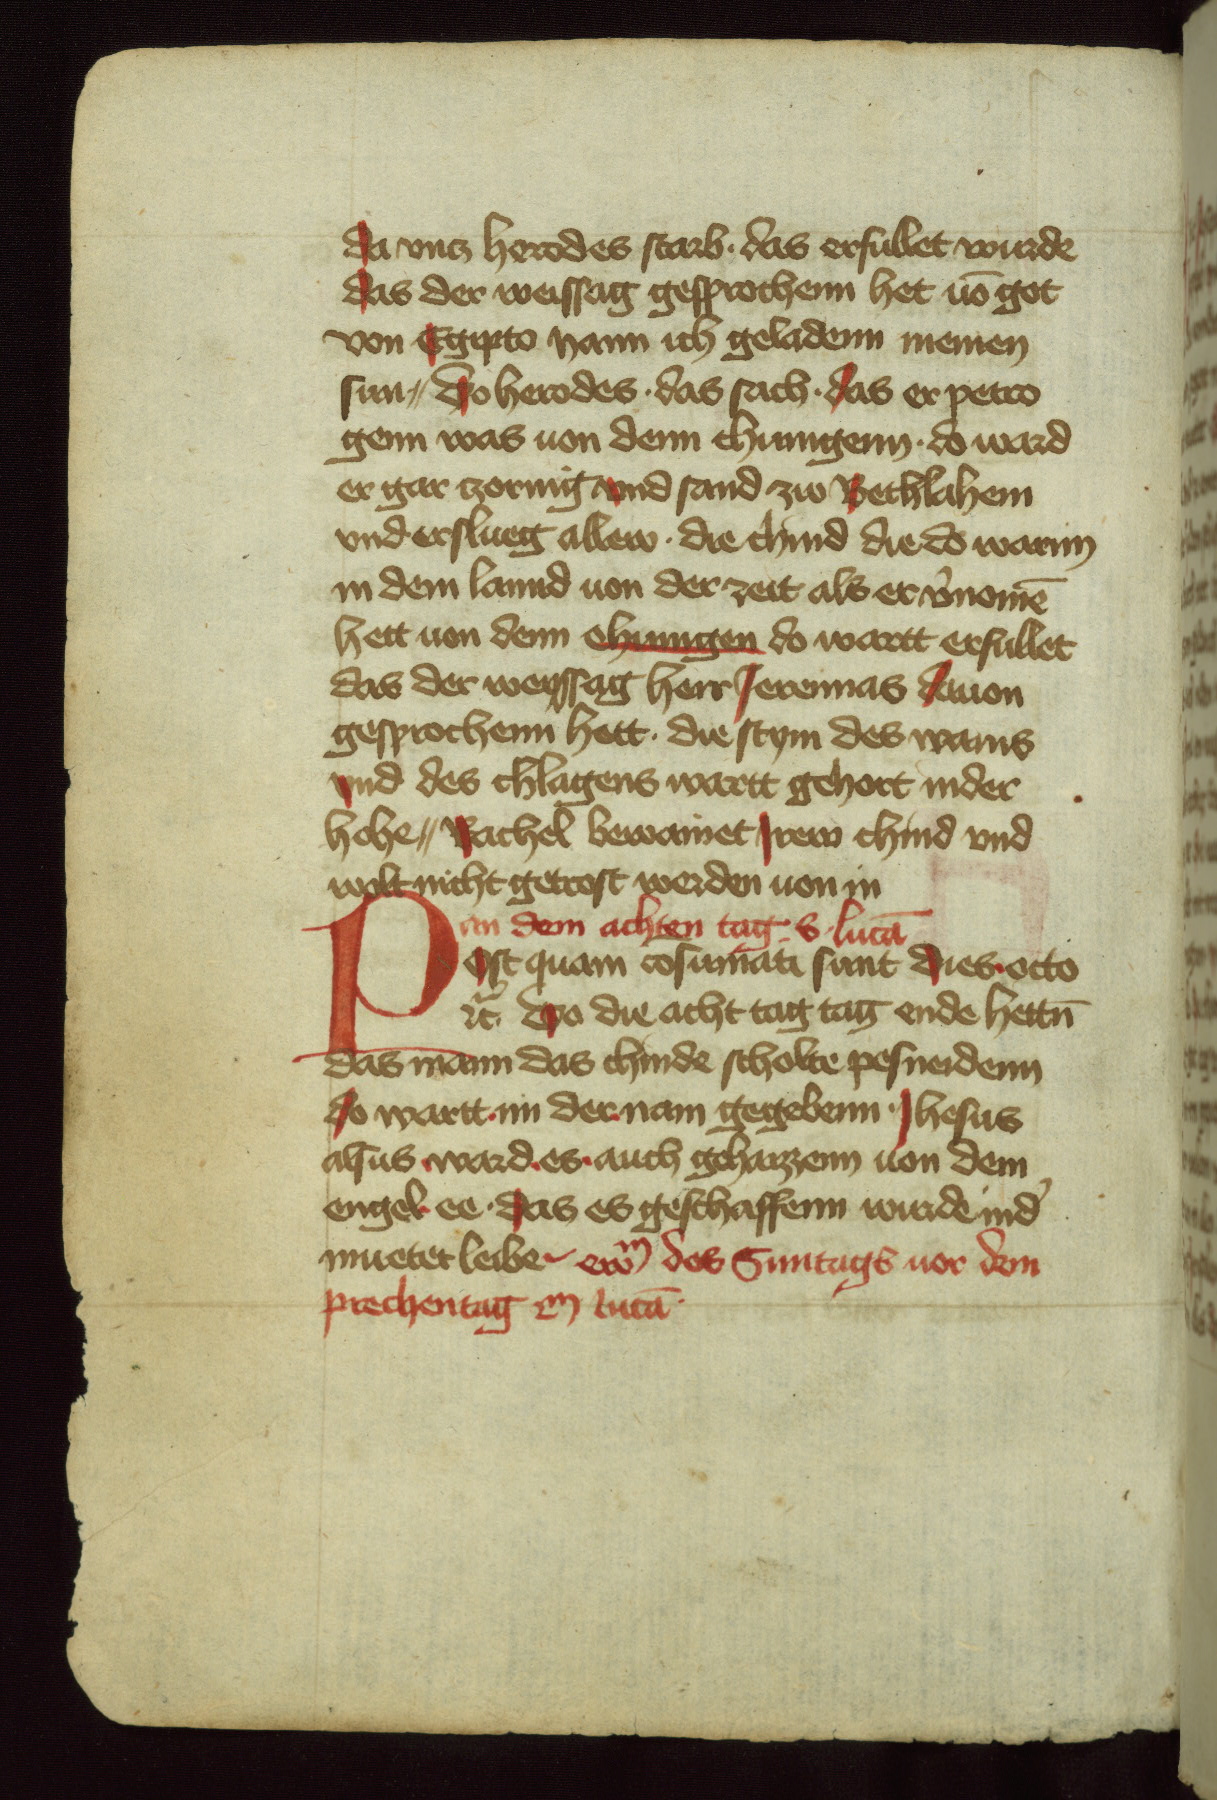 da vntz herodes starb · das erfullet wurde
das der weissag gesprochenn het uō got
von Egipto hann ich geladenn meinen
sun // Do herodes · das sach · das er petro
genn was uon denn chunigenn · do ward
er gar zornig vnd sand zw Bethlahem
vnd erslueg allew · die chind die do warnn
in dem lannd uon der zeit als er v̾nomē
hett uon denn chunigen do wartt erfullet
das der weyssag herr Jeremias dauon
gesprochenn hett · die stym des wains
vnd des chlagens wartt gehort inder
hohe // Rachel bewainet Jrew chind vnd
wolt nicht getrost werden uon in
an dem achten tag · s · lucā
Post quam cōsumati sunt dies · octo
rc̄ Do die acht tag tag ende hettn̄
das mann das chinde scholte pesneidenn
do wartt · im der · nam gegebenn · Jhesus
alsus · ward · es · auch gehaizzenn uon dem
engel · ee · das es geschaffenn wurde ind̾
mueter leibe ewm des Suntags uor dem
prechentag em lucā ·